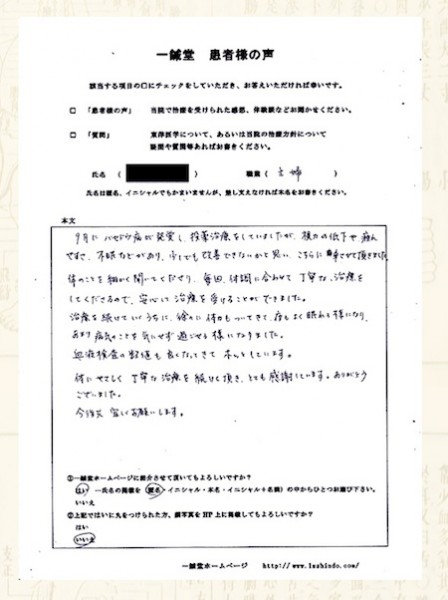 一鍼堂 患者様の声
該当する項目の□にチェックをしていただき、お答えいただければ幸いです。
□ 「患者様の声」 当院で治療を受けられた感想、体験談などお聞かせください。
□ 「質問」 東洋医学について、あるいは当院の治療方針について
疑問や質問等あればお書きください。
氏名 ( ) 職業 ( 主婦 )
氏名は匿名、イニシャルでもかまいませんが、差し支えなければ本名をお書きください。
本文
9月にバセドウ病が発覚し、投薬治療をしていましたが、視力の低下や
不眠などがあり、少しでも改善できないかと思い、こちらに来させて頂きました。
体のことを細かく聞いてくださり、毎回、体調に合わせて丁寧な治療を
してくださるので、安心して治療を受けることができました。
治療を続けていくうちに、徐々に体力もついてきて、夜もよく眠れる様になり、
あまり病気のことを気にせず過ごせる様になりました。
血液検査の数値も良くなってきてホッとしています。
体にやさしく丁寧な治療を続けて頂き、とても感謝しています。ありがとう
ございました。
今後共宜しくお願いします。
①一鍼堂ホームページに紹介させて頂いてもよろしいですか？
はい －氏名の掲載を(匿名・イニシャル・本名・イニシャル＋名前)の中からひとつお選び下さい。
いいえ
②上記ではいに丸をつけられた方、顔写真を HP 上に掲載してもよろしいですか？
はい
いいえ
一鍼堂ホームページ http://www.1sshindo.com/